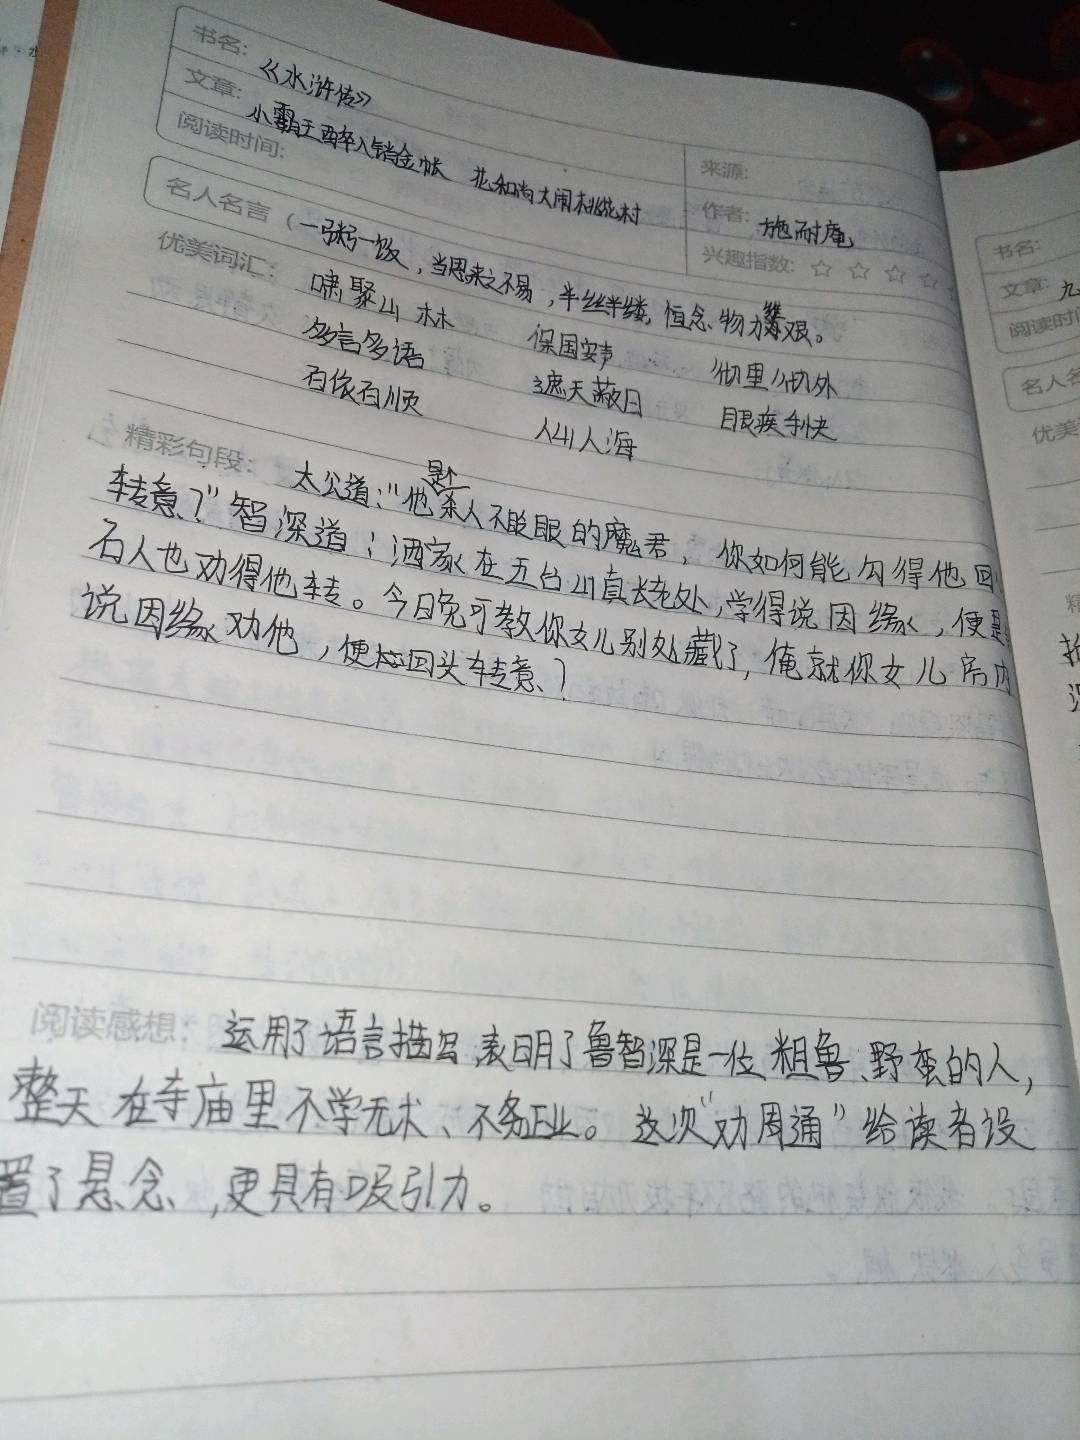 书名：《水浒传》
来源：
文章：小霸王醉入销金帐 花和尚大闹桃花村
作者：施耐庵
阅读时间：
兴趣指数：☆ ☆ ☆ ☆
名人名言（一粥一饭，当思来之不易，半丝半缕，恒念物力维艰。
优美词汇：啸聚山林 保国安声 彻里彻外
多言多语 遮天蔽日 眼疾手快
百依百顺 人山人海
精彩句段：太公道：“他是杀人不眨眼的魔君，你如何能勾得他回
转意？”智深道：洒家在五台山真长老处，学得说因缘，便是
石人也劝得他转。今晚可教你女儿别处藏了，俺就你女儿房内
说因缘劝他，便回头转意？
阅读感想：运用了语言描写，表明了鲁智深是一位粗鲁、野蛮的人，
整天在寺庙里不学无术、不务正业。这次“劝周通”给读者设
置了悬念，更具有吸引力。
书名：
文章：九
阅读时间
名人名
优美